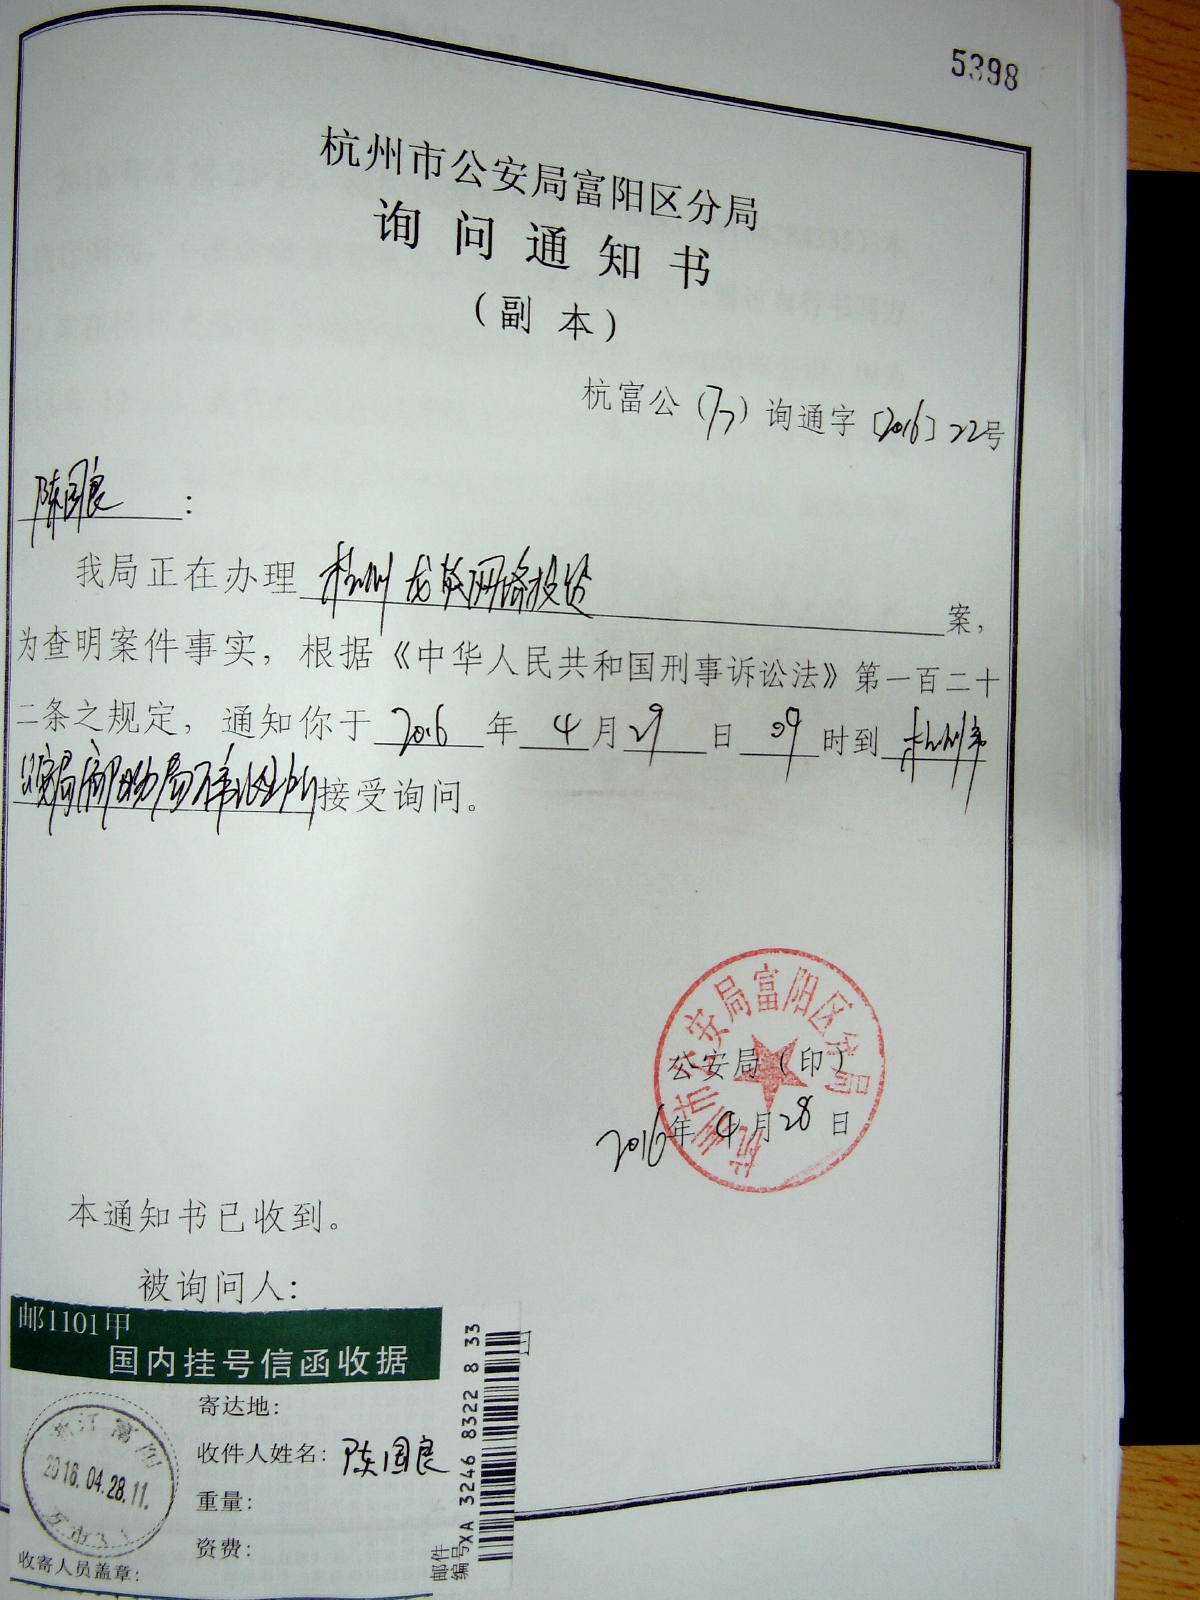 5398
杭州市公安局富阳区分局
询问通知书
（副本）
杭富公（万）询通字〔2016〕22号
陈国良：
我局正在办理杭州龙炎网络投资案，
为查明案件事实，根据《中华人民共和国刑事诉讼法》第一百二十
二条之规定，通知你于2016年4月29日09时到杭州市
公安局富阳分局万市派出所接受询问。
杭州市公安局富阳区分局
公安局（印）
2016年4月28日
本通知书已收到。
被询问人：
日
邮1101甲
国内挂号信函收据
寄达地：
收件人姓名：陈国良
重量：
资费：
收寄人员盖章：
浙江富阳
2016.04.28.11.
万市
邮件
编号XA 3246 8322 8 33